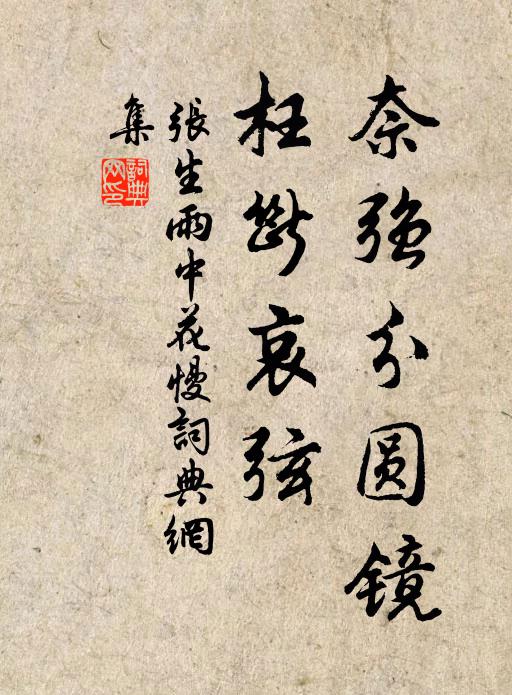 奈強分圓鏡
枉斷哀弦
張生雨中花慢詞典網
集
詞典
网印